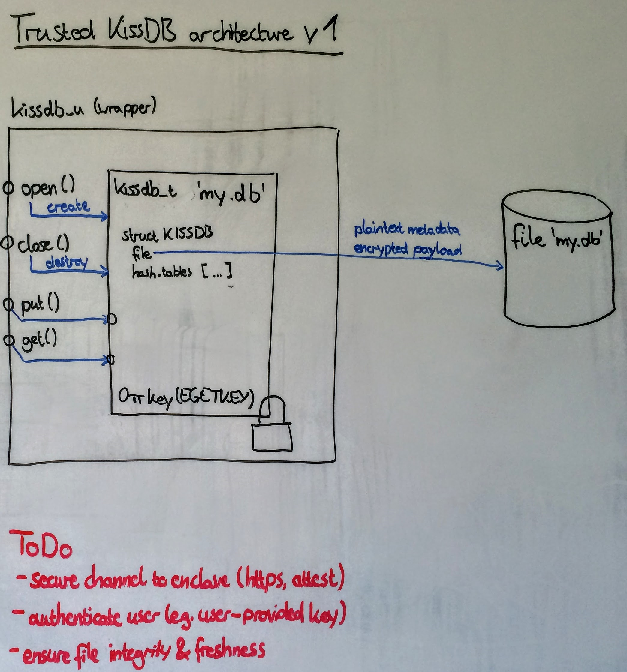 Trusted KissDB architecture v1
kissdb_u (wrapper)
open()
create
close()
destroy
put()
get()
kissdb_t 'my.db'
struct KISSDB
file
hash.tables [...]
key (EGETKEY)
plaintext metadata
encrypted payload
file 'my.db'
ToDo
- secure channel to enclave (https, attest)
- authenticate user (e.g. user-provided key)
- ensure file integrity & freshness